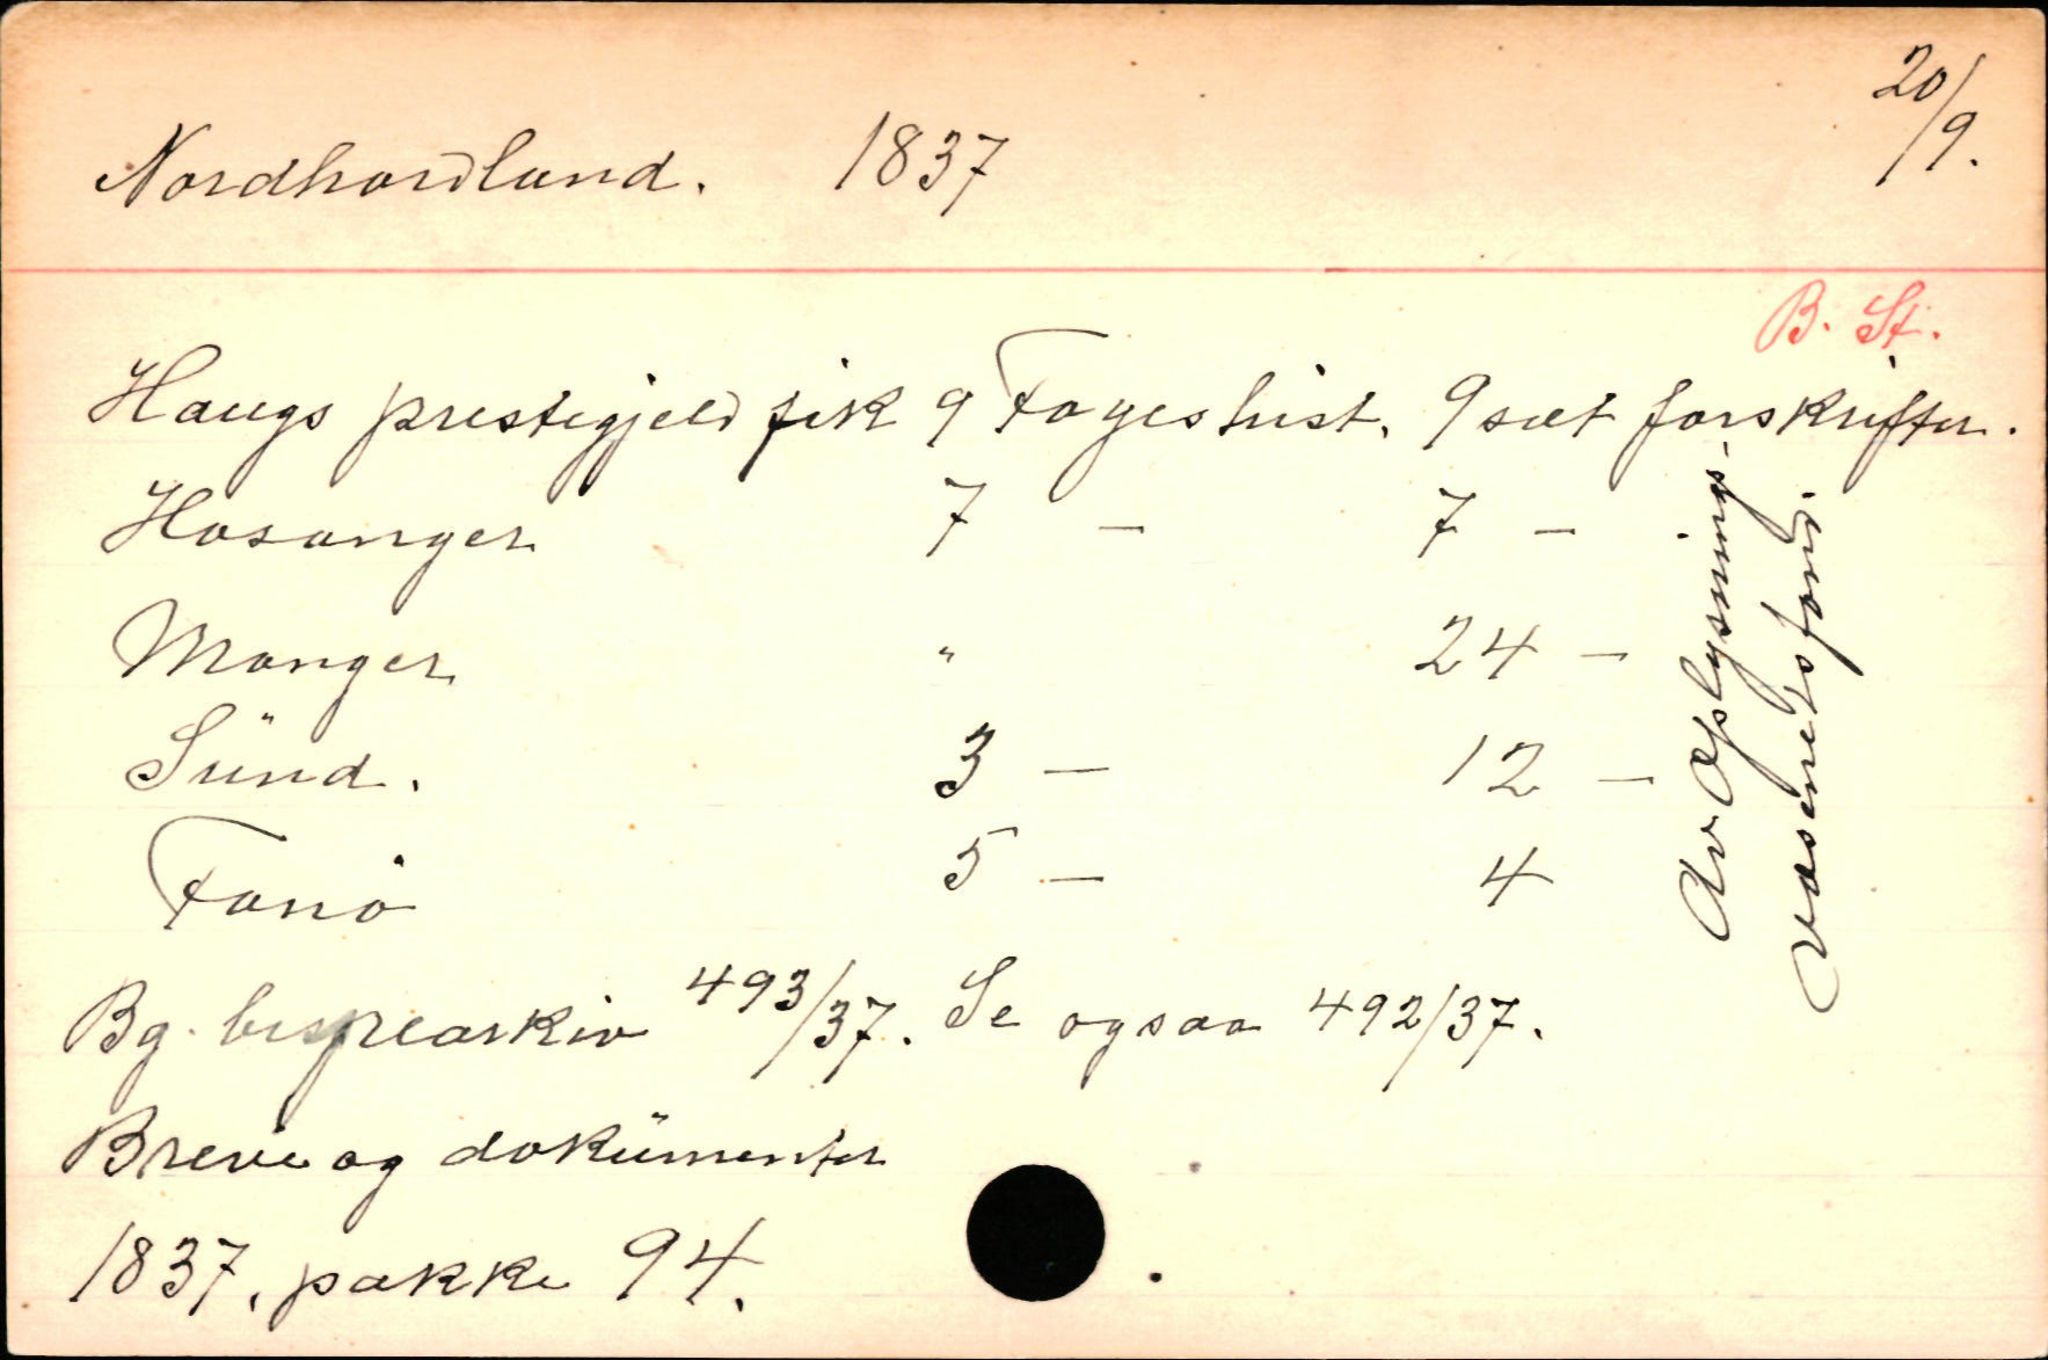 Nordhordland. 1837 20/9.
B. St.
Haugs prestegjeld fik 9 Fayes hist. 9 sæt forskrifter.
Hosanger 7 — 7 —
Manger " 24 —
Sünd. 3 — 12 —
Fanø 5 — 4
Av Oplysnings-
væsenets fond.
Bg. bispearkiv 493/37. Se ogsaa 492/37.
Breve og dokümenter
1837, pakke 94.